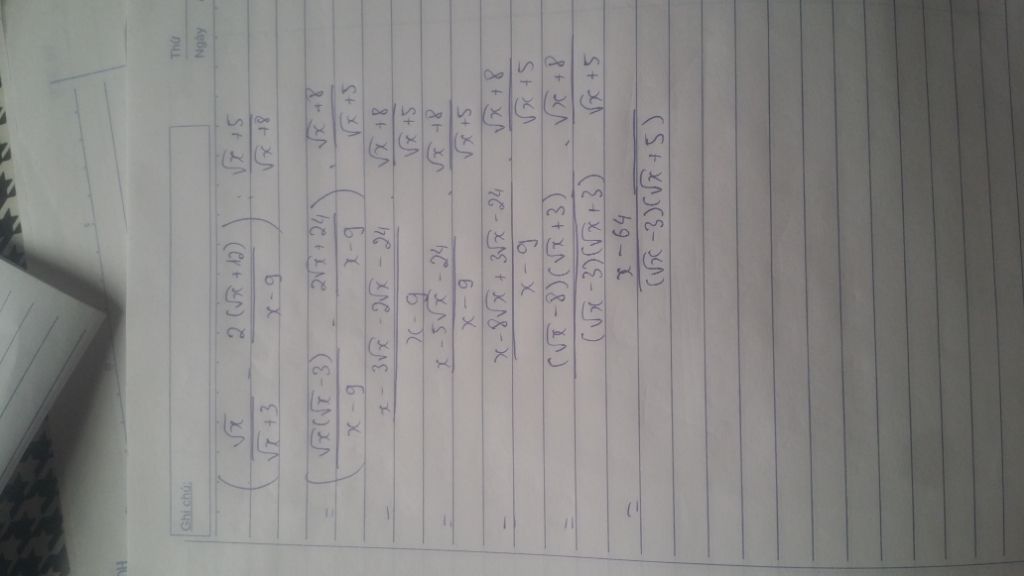 Thứ
Ngày
Ghi chú:
(√x/(√x+3) - 2(√x+12)/(x-9)) . (√x+5)/(√x+8)
= (√x(√x-3)/(x-9) - (2√x+24)/(x-9)) . (√x+8)/(√x+5)
= (x-3√x-2√x-24)/(x-9) . (√x+8)/(√x+5)
= (x-5√x-24)/(x-9) . (√x+8)/(√x+5)
= (x-8√x+3√x-24)/(x-9) . (√x+8)/(√x+5)
= (√x-8)(√x+3)/(√x-3)(√x+3) . (√x+8)/(√x+5)
= (x-64)/(√x-3)(√x+5)